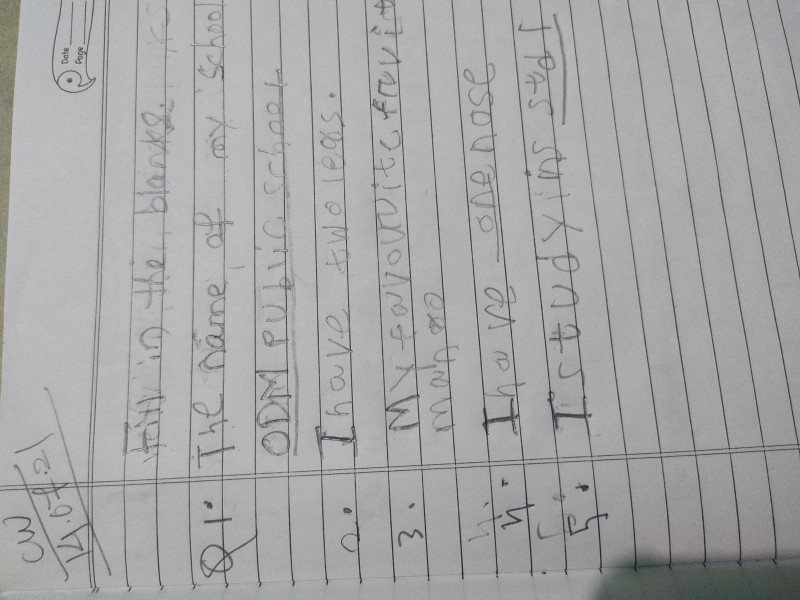 Date
Page
CW
14.07.21
Fill in the blanks.
Q1. The name of my school
ODM Public school
2. I have two legs.
3. My favouvite fruvit
mango
4. I have one nose
5. I studying std 1